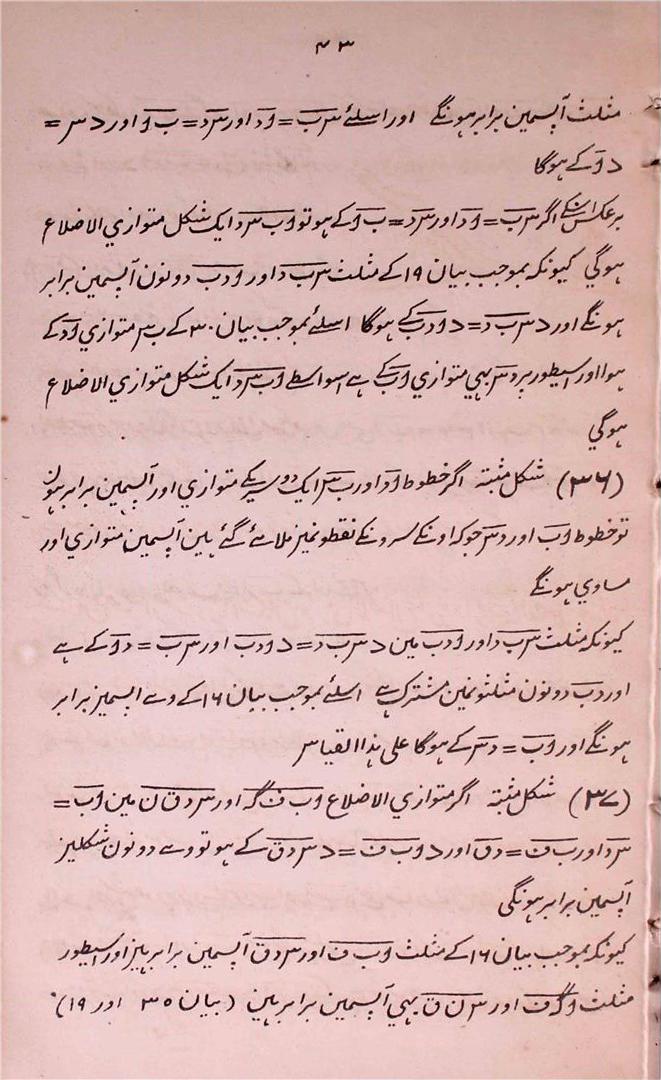 ۴۳
مثلث آپسمین برابر ہونگے اور اسلئے س ب = و د اور س د = ب و اور > س =
> و کے ہوگا
برعکس اسکے اگر س ب = و د اور س د = ب و کے ہو تو و ب س د ایک شکل متوازي الاضلاع
ہوگي کیونکہ بموجب بیان ۱۹ کے مثلث س ب د اور و د ب دونون آپسمین برابر
ہونگے اور > س ب د = > و د ب کے ہوگا اسلئے بموجب بیان ۳۰ کے ب س متوازي و د کے
ہوا اور اسیطور پر د س بہي متوازي و ب کے ہے اسواسطے و ب س د ایک شکل متوازي الاضلاع
ہوگي
(۳۶) شکل مثبتہ اگر خطوط و د اور ب س ایک دوسریکے متوازي اور آپسمین برابر ہون
تو خطوط و ب اور د س جو کہ اونکے سرونکے نقطونمیز ملائے گئے ہین آپسمین متوازي اور
مساوي ہونگے
کیونکہ مثلث س ب د اور و د ب مین > س ب د = > و د ب اور س ب = د و کے ہے
اور د ب دونون مثلثونمین مشترک ہے اسلئے بموجب بیان ۱۶ کے وے آپسمیز برابر
ہونگے اور و ب = د س کے ہوگا علی ہذا القیاس
(۳۷) شکل مثبتہ اگر متوازي الاضلاع و ب ف گ اور س د ق ن مین و ب =
س د اور ب ف = د ق اور > و ب ف = > س د ق کے ہو تو وے دونون شکلیز
آپسمین برابر ہونگی
کیونکہ بموجب بیان ۱۶ کے مثلث و ب ف اور س د ق آپسمین برابر ہیز اور اسیطور
مثلث و گ ف اور س ن ق بہي آپسمین برابر ہین (بیان ۳۵ اور ۱۹)